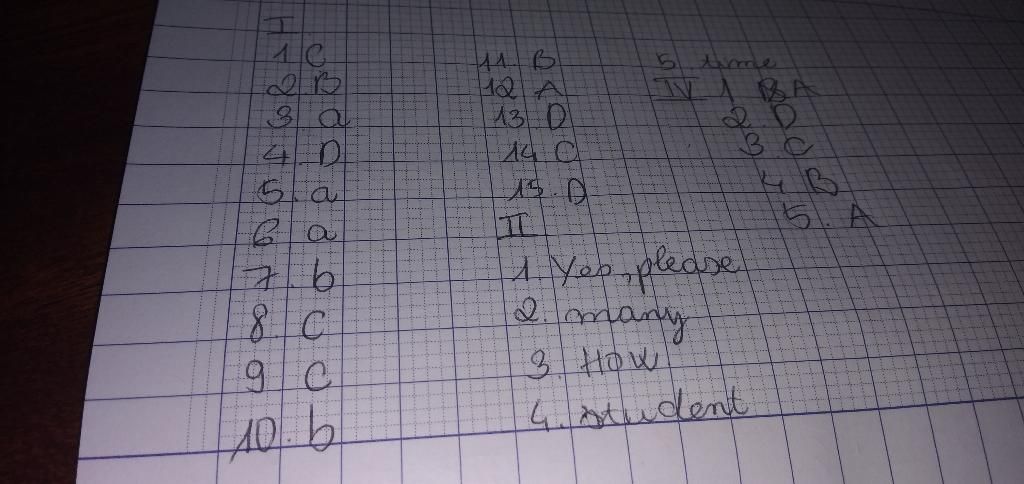 I
1 C
2 B
3. a
4. D
5. a
6 a
7. b
8. C
9 C
10. b
11 B
12 A
13 D
14 C
15. D
II
1. Yes, please
2. many
3. HOW
4. student
5 time
IV 1 A
2 D
3. C
4 B
5. A